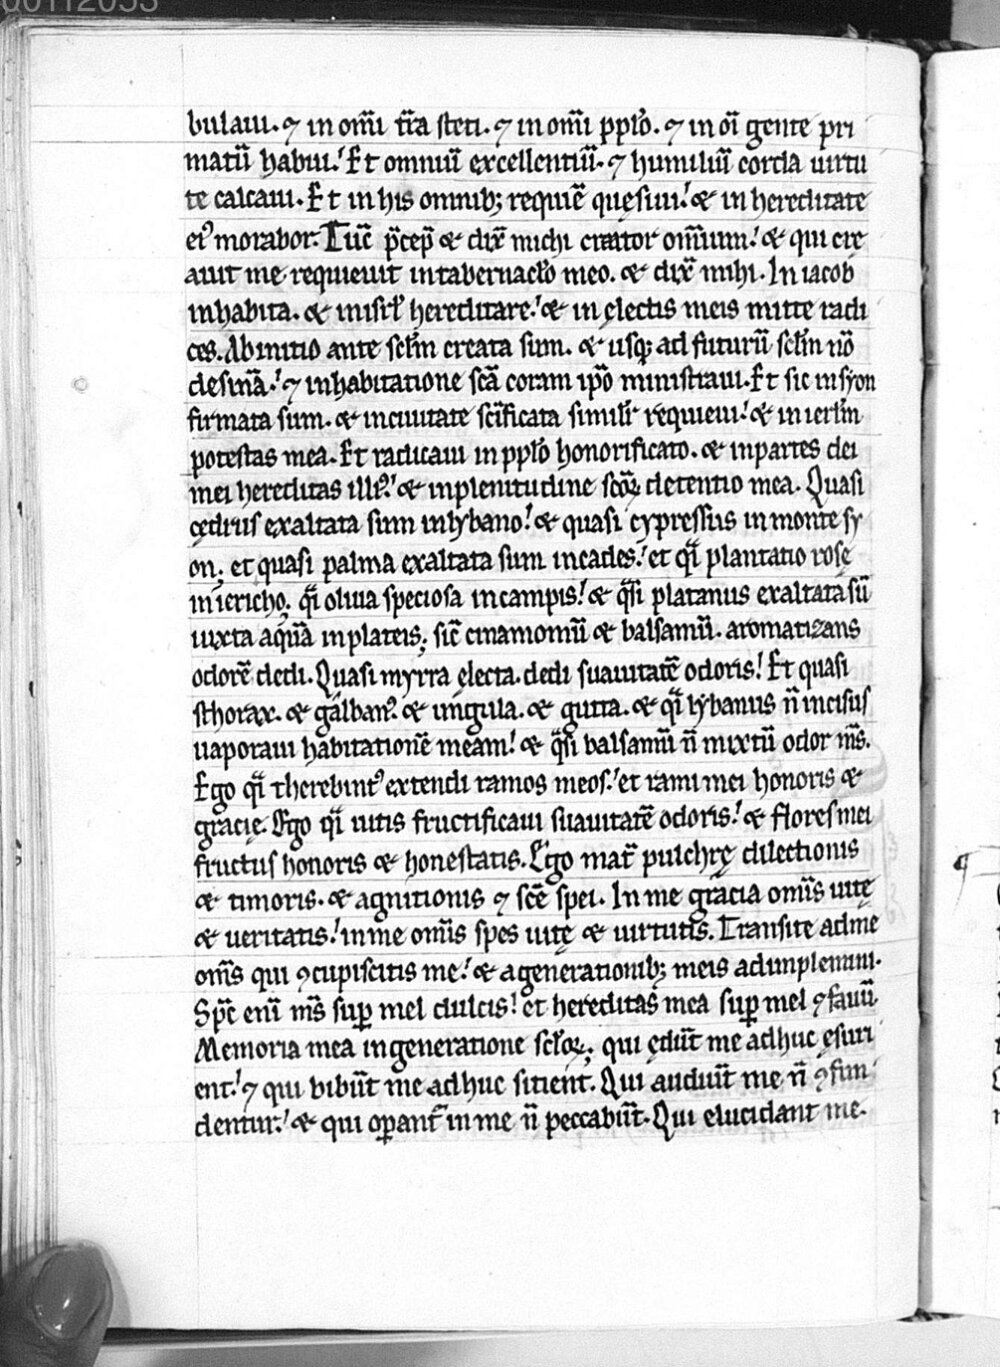 00112053
bulaui. ⁊ in om̄i t̄ra steti. ⁊ in om̄i pp̄lo. ⁊ in oī gente pri
matū habui.' Et omniū excellentiū. ⁊ humiliū corda uirtu
te calcaui. Et in his omnib; requiē quęsiui.' & in hereditate
ei᷒ morabor. Tūc p̄cep̄ & dix̄ michi creator om̄ium.' & qui cre
auit me requieuit in tabernacl̄o meo. & dix̄ mihi. In iacob
inhabita. & in isrl̄ hereditare.' & in ęlectis meis mitte radi
ces. Ab initio ante scl̄m creata sum. & usq; ad futurū scl̄m nō
desinā.' ⁊ in habitatione scā coram ip̄o ministraui. Et sic in syon
firmata sum. & in ciuitate sc̄ificata simil̄r requieui.' & in ierl̄m
potestas mea. Et radicaui in pp̄lo honorificato. & in partes dei
mei hereditas ill᷒.' & in plenitudine scōꝝ detentio mea. Quasi
cędrus exaltata sum in lybano.' & quasi cypressus in monte sy
on; et quasi palma exaltata sum in cades.' et qͣi plantatio rosę
in iericho; qͣi oliua speciosa in campis.' & qͣsi platanus exaltata sū
iuxta aquā in plateis; sic̄ cinamomū & balsamū. aromatizans
odorē dedi. Quasi myrra ęlecta. dedi suauitatē odoris.' Et quasi
sthorax. & galban᷒. & ungula. & gutta. & qͣi lybanus n̄ incisus
uaporaui habitationē meam.' & qͣsi balsamū n̄ mixtū odor m̄s.
Ego qͣi therebint᷒ extendi ramos meos.' et rami mei honoris &
gracię. Ego qͣi uitis fructificaui suauitatē odoris.' & flores mei
fructus honoris & honestatis. Ego mat̄ pulchrę dilectionis
& timoris. & agnitionis ⁊ scē spei. In me gracia om̄is uitę
& ueritatis.' in me om̄is spes uitę & uirtutis. Transite ad me
om̄s qui ꝯcupiscitis me.' & a generationib; meis adimplemini.
Sp̄c enī m̄s suꝑ mel dulcis.' et hereditas mea suꝑ mel ⁊ fauū.
Memoria mea in generatione scl̄oꝝ; qui ędūt me adhuc ęsuri
ent.' ⁊ qui bibūt me adhuc sitient. Qui audiūt me n̄ ꝯfun
dentur.' & qui oꝑant̄ in me n̄ peccabūt. Qui elucidant me.